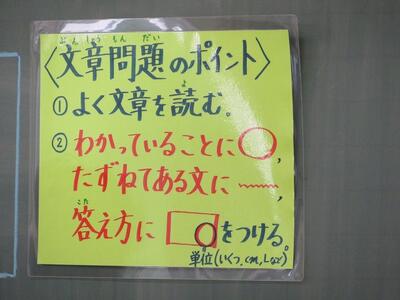 ぶんしょうもんだい
〈文章問題のポイント〉
よ
①よく文章を読む。
②わかっていることに◯,
たずねてある文に﹏﹏,
こた
答え方に□をつける。
単位(いくつ,cm,Lなど)